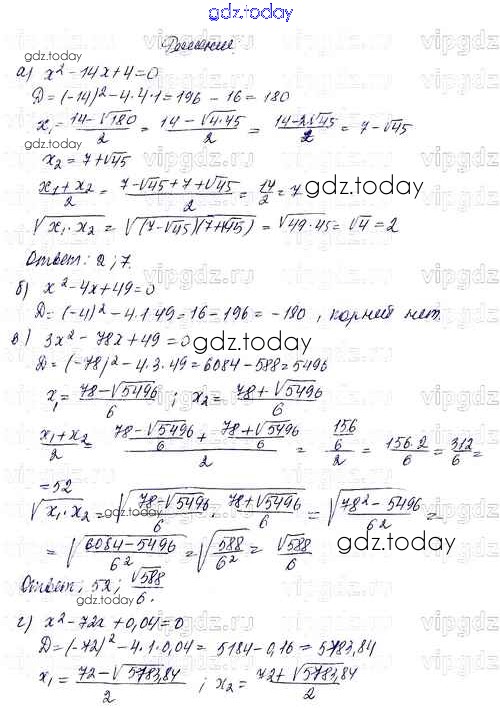 gdz.today
Решение.
gdz.today
а) x² - 14x + 4 = 0
D = (-14)² - 4·4·1 = 196 - 16 = 180
x₁ = (14 - √180)/2 = (14 - √(4·45))/2 = (14 - 2√45)/2 = 7 - √45
x₂ = 7 + √45
(x₁ + x₂)/2 = (7 - √45 + 7 + √45)/2 = 14/2 = 7
gdz.today
√(x₁·x₂) = √((7 - √45)(7 + √45)) = √(49·45) = √4 = 2
Ответ: 2; 7.
gdz.today
б) x² - 4x + 49 = 0
D = (-4)² - 4·1·49 = 16 - 196 = -190, корней нет.
в) 3x² - 78x + 49 = 0
gdz.today
D = (-78)² - 4·3·49 = 6084 - 588 = 5496
x₁ = (78 - √5496)/6; x₂ = (78 + √5496)/6
(x₁ + x₂)/2 = ((78 - √5496)/6 + (78 + √5496)/6)/2 = (156/6)/2 = (156·2)/6 = 312/6 =
= 52
√(x₁·x₂) = √((78 - √5496)/6 · (78 + √5496)/6) = √((78² - 5496)/6²) =
gdz.today
= √((6084 - 5496)/6²) = √(588/6²) = √588/6
gdz.today
Ответ: 52; √588/6.
gdz.today
г) x² - 72x + 0,04 = 0
D = (-72)² - 4·1·0,04 = 5184 - 0,16 = 5783,84
x₁ = (72 - √5783,84)/2; x₂ = (72 + √5783,84)/2
vipgdz.ru